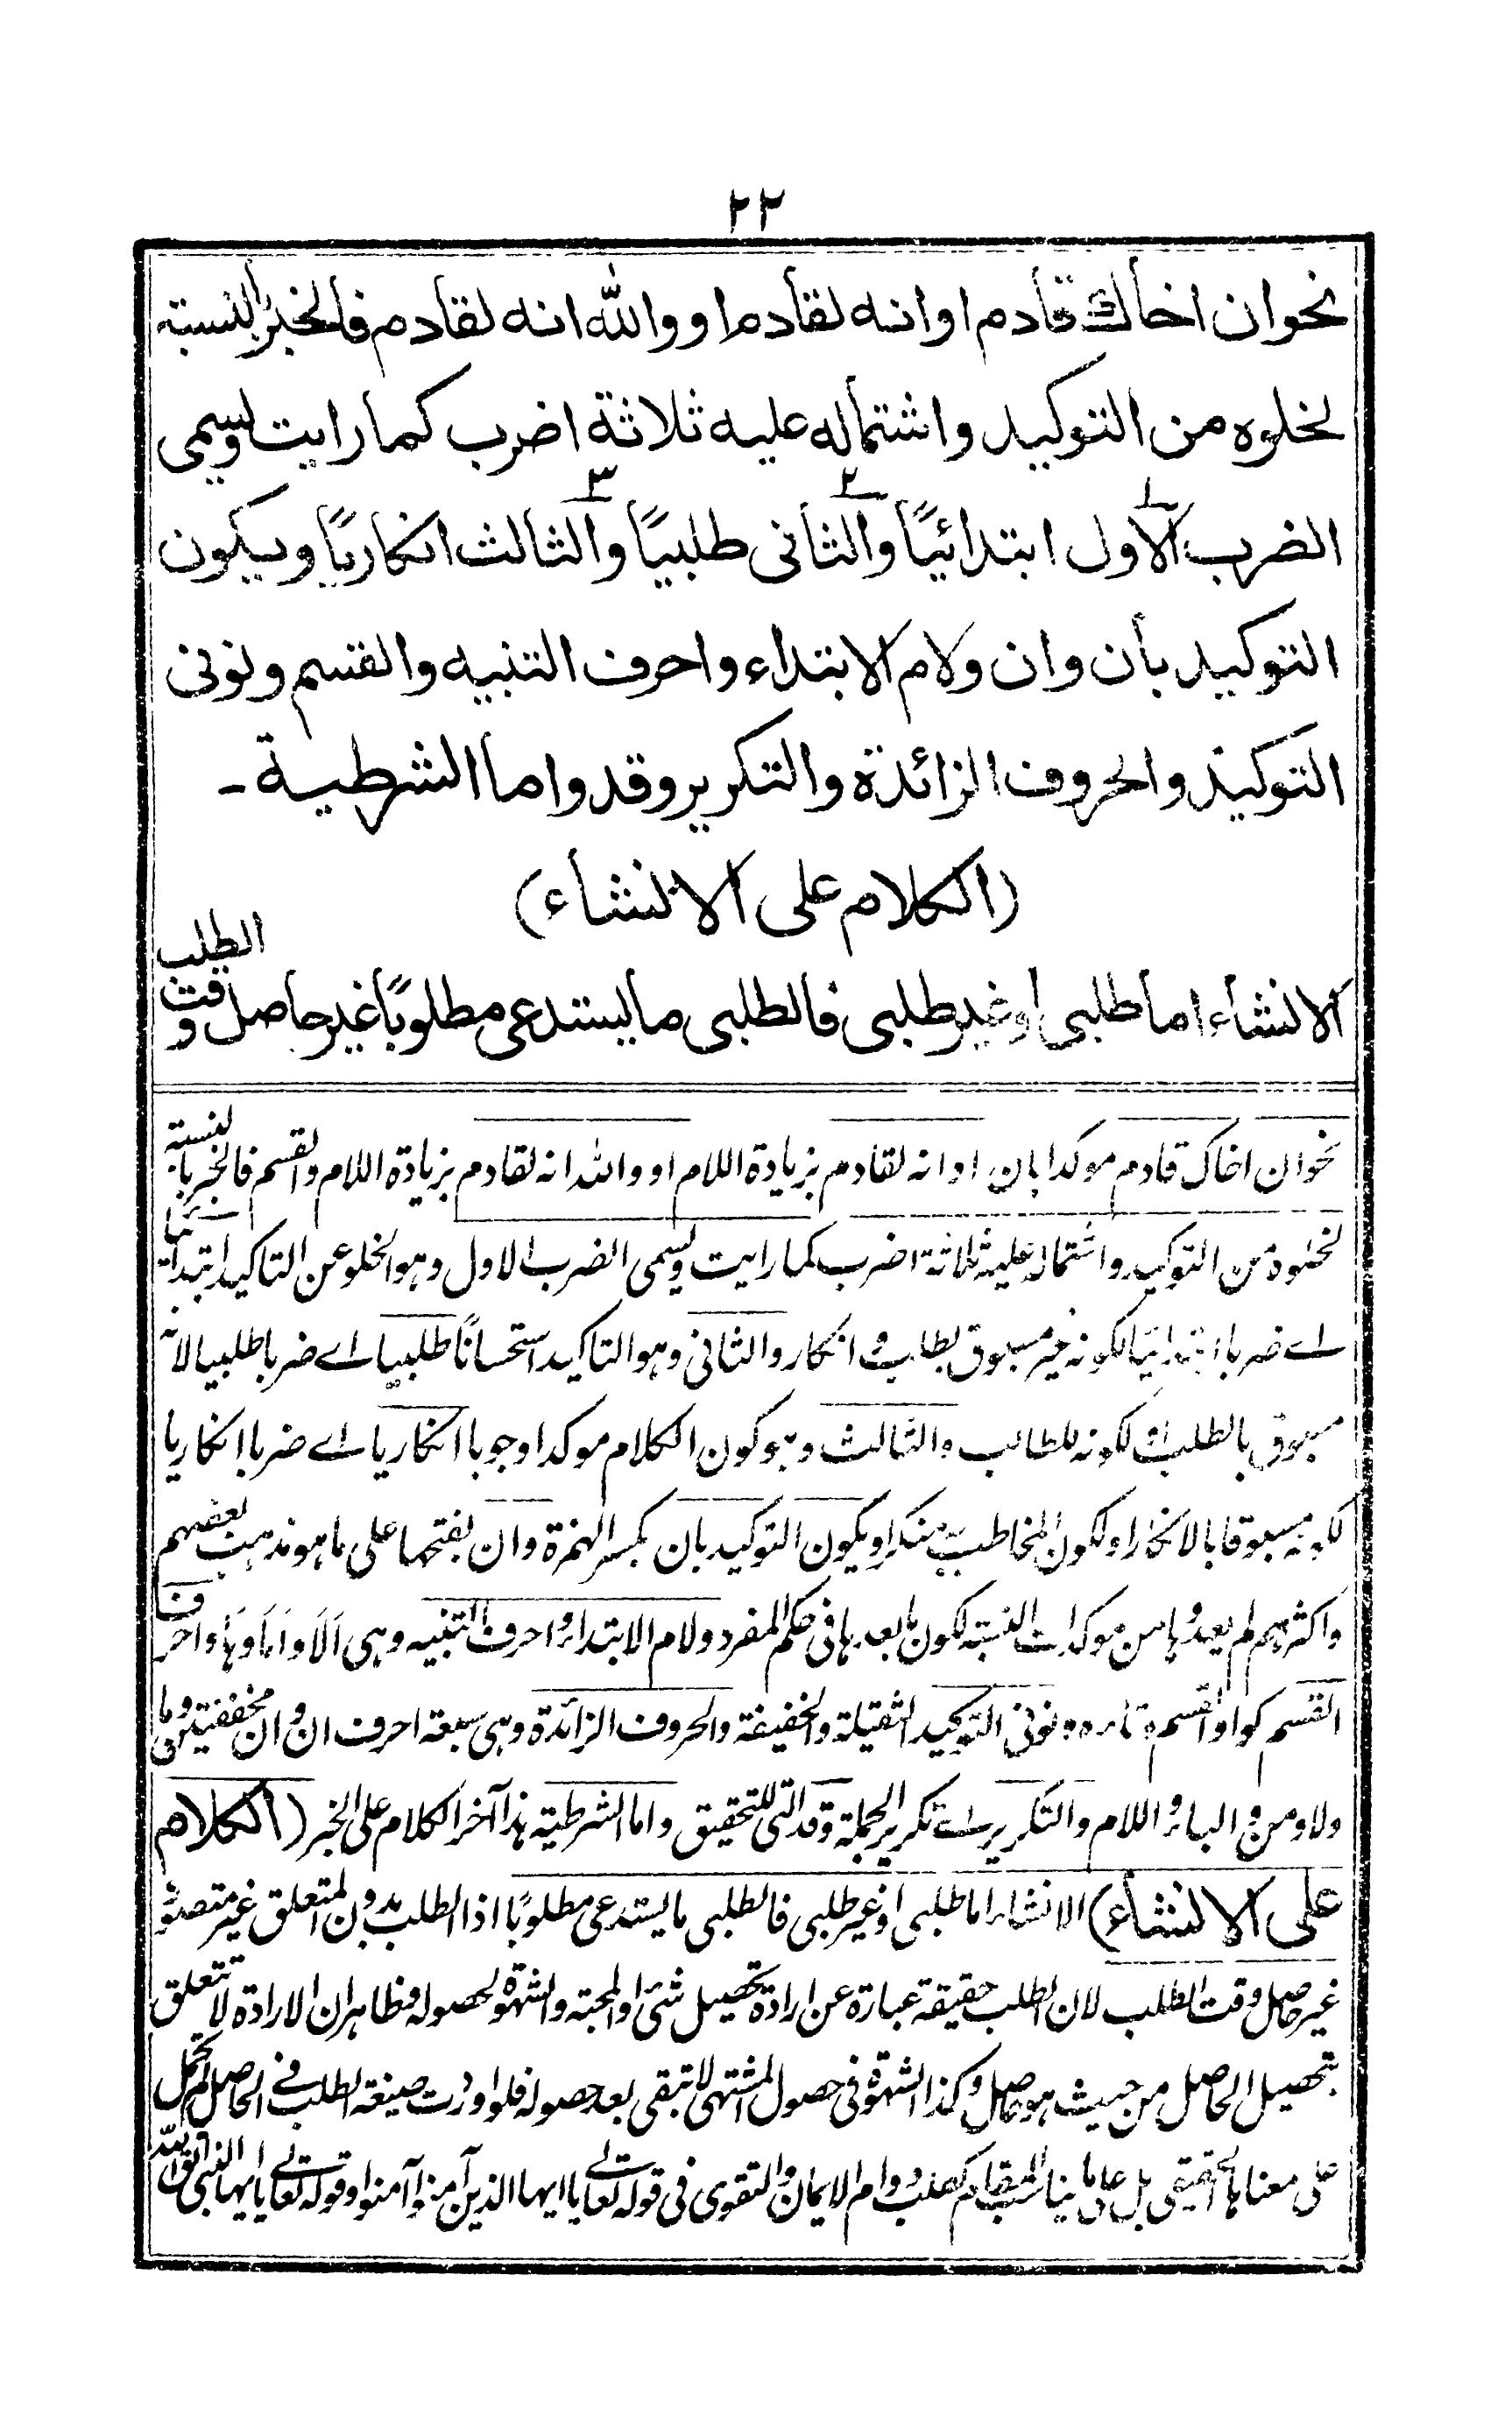 ٢٢
نحو ان اخاك قادم او انه لقادم او والله انه لقادم فالخبر بالنسبة
لخلوه من التوكيد واشتماله عليه ثلاثة اضرب كما رايت ويسمى
الضرب الاول ابتدائيًا والثانى طلبيًا والثالث انكاريًا ويكون
١ ٢ ٣
التوكيد بأن وان ولام الابتداء واحرف التنبيه والقسم ونونى
التوكيد والحروف الزائدة والتكرير وقد واما الشرطية -
(الكلام على الانشاء)
الانشاء اما طلبى او غير طلبى فالطلبى ما يستدعى مطلوبًا غير حاصل وقت الطلب
نحو ان اخاك قادم موكدا بان او انه لقادم بزيادة اللام او والله انه لقادم بزيادة اللام والقسم فالخبر بالنسبة
لخلوه من التوكيد واشتماله عليه ثلاثة اضرب كما رايت ويسمى الضرب الاول وهو الخلو عن التاكيد ابتدائيا
اے ضربا ابتدائيا لكونه غير مسبوق بطلب و انكار والثانى وهو التاكيد استحسانًا طلبيا اے ضربا طلبيا لانه
مسبوق بالطلب او لكونه للطالب والثالث وهو كون الكلام موكدا وجوبا انكاريا اے ضربا انكاريا
لكونه مسبوقا بالانكار او لكون المخاطب منكرا ويكون التوكيد بان بكسر الهمزة وان بفتحها على ما هو مذهب بعضهم
واكثرهم لم يعدوها من موكدات النسبة لكون ما بعدها فى حكم المفرد ولام الابتداء واحرف التنبيه وهى اَلَا واَمَا وهَا واحرف
القسم كواو القسم و تاءه ونونى التوكيد الثقيلة والخفيفة والحروف الزائدة وهى سبعة احرف ان وان مخففتين وما
ولا ومن والباء واللام والتكرير اے تكرير الجملة وقد التى للتحقيق واما الشرطية هذا آخر الكلام على الخبر (الكلام
على الانشاء) الانشاء اما طلبى او غير طلبى فالطلبى ما يستدعى مطلوبًا اذ الطلب بدون المتعلق غير متصور
غير حاصل وقت الطلب لان الطلب حقيقة عبارة عن ارادة تحصيل شئ او المحبة والشهوة لحصوله وظاهر ان الارادة لا تتعلق
بتحصيل الحاصل من حيث هو حاصل وكذا الشهوة فى حصول المشتهى لا تبقى بعد حصوله فلو اوردت صيغة الطلب فى الحاصل لم تحمل
على معناها الحقيقى بل على ما يناسب المقام كطلب دوام الايمان والتقوى فى قوله تعالے يا ايها الذين آمنوا آمنوا وقوله تعالے يا ايها النبى اتق الله